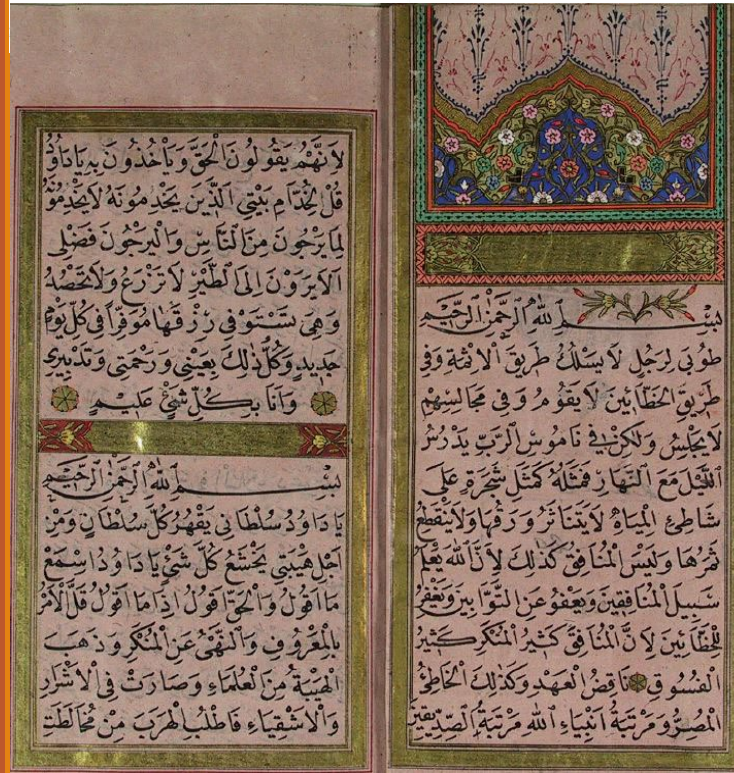 بِسْمِ اللهِ الرَّحْمٰنِ الرَّحِيْمِ
طُوبٰى لِرَجُلٍ لَا يَسْلُكُ طَرِيْقَ الْاَثَمَةِ وَفِي
طَرِيْقِ الْخَطَّائِيْنَ لَا يَقُوْمُ وَفِي مَجَالِسِهِمْ
لَا يَجْلِسُ وَلٰكِنْ فِي نَامُوْسِ الرَّبِّ يَدْرُسُ
اللَّيْلَ مَعَ النَّهَارِ فَمَثَلُهُ كَمَثَلِ شَجَرَةٍ عَلٰى
شَاطِئِ الْمِيَاهِ لَا يَتَنَاثَرُ وَرَقُهَا وَلَا يَنْقَطِعُ
ثَمَرُهَا وَلَيْسَ الْمُنَافِقُ كَذٰلِكَ لِاَنَّ اللهَ يَعْلَمُ
سَبِيْلَ الْمُنَافِقِيْنَ وَيَعْفُو عَنِ التَّوَّابِيْنَ وَيَغْفِرُ
لِلْخَطَّائِيْنَ لِاَنَّ الْمُنَافِقَ كَثِيْرُ الْمُنْكَرِ كَثِيْرُ
الْفُسُوْقِ نَاقِضُ الْعَهْدِ وَكَذٰلِكَ الْخَاطِئُ
الْمُصِرُّ وَمَرْتَبَةُ اَنْبِيَاءِ اللهِ مَرْتَبَةُ الصِّدِّيْقِيْنَ
لِاَنَّهُمْ يَقُوْلُوْنَ الْحَقَّ وَيَأْخُذُوْنَ بِهِ يَا دَاوُدُ
قُلْ لِخُدَّامِ بَيْتِي الَّذِيْنَ يَخْدِمُوْنَهُ لَا يَخْدِمُوْنَهُ
لِمَا يَرْجُوْنَ مِنَ النَّاسِ وَالْيَرْجُوْنَ فَضْلِي
اَلَا يَرَوْنَ اِلَى الطَّيْرِ لَا تَزْرَعُ وَلَا تَحْصُدُ
وَهِيَ تَسْتَوْفِي رِزْقَهَا مُوَفَّرًا فِي كُلِّ يَوْمٍ
جَدِيْدٍ وَكُلُّ ذٰلِكَ بِعَيْنِي وَرَحْمَتِي وَتَدْبِيْرِي
وَاَنَا بِكُلِّ شَيْءٍ عَلِيْمٌ
بِسْمِ اللهِ الرَّحْمٰنِ الرَّحِيْمِ
يَا دَاوُدُ سُلْطَانِي يَقْهَرُ كُلَّ سُلْطَانٍ وَمِنْ
اَجْلِ هَيْبَتِي يَخْشَعُ كُلُّ شَيْءٍ يَا دَاوُدُ اسْمَعْ
مَا اَقُوْلُ وَالْحَقَّ اَقُوْلُ اِذَا مَا اَقُوْلُ قَلَّ الْاَمْرُ
بِالْمَعْرُوْفِ وَالنَّهْيُ عَنِ الْمُنْكَرِ وَذَهَبَ
الْهَيْبَةُ مِنَ الْعُلَمَاءِ وَصَارَتْ فِي الْاَشْرَارِ
وَالْاَشْقِيَاءِ فَاطْلُبِ الْهَرَبَ مِنْ مُخَالَطَتِي